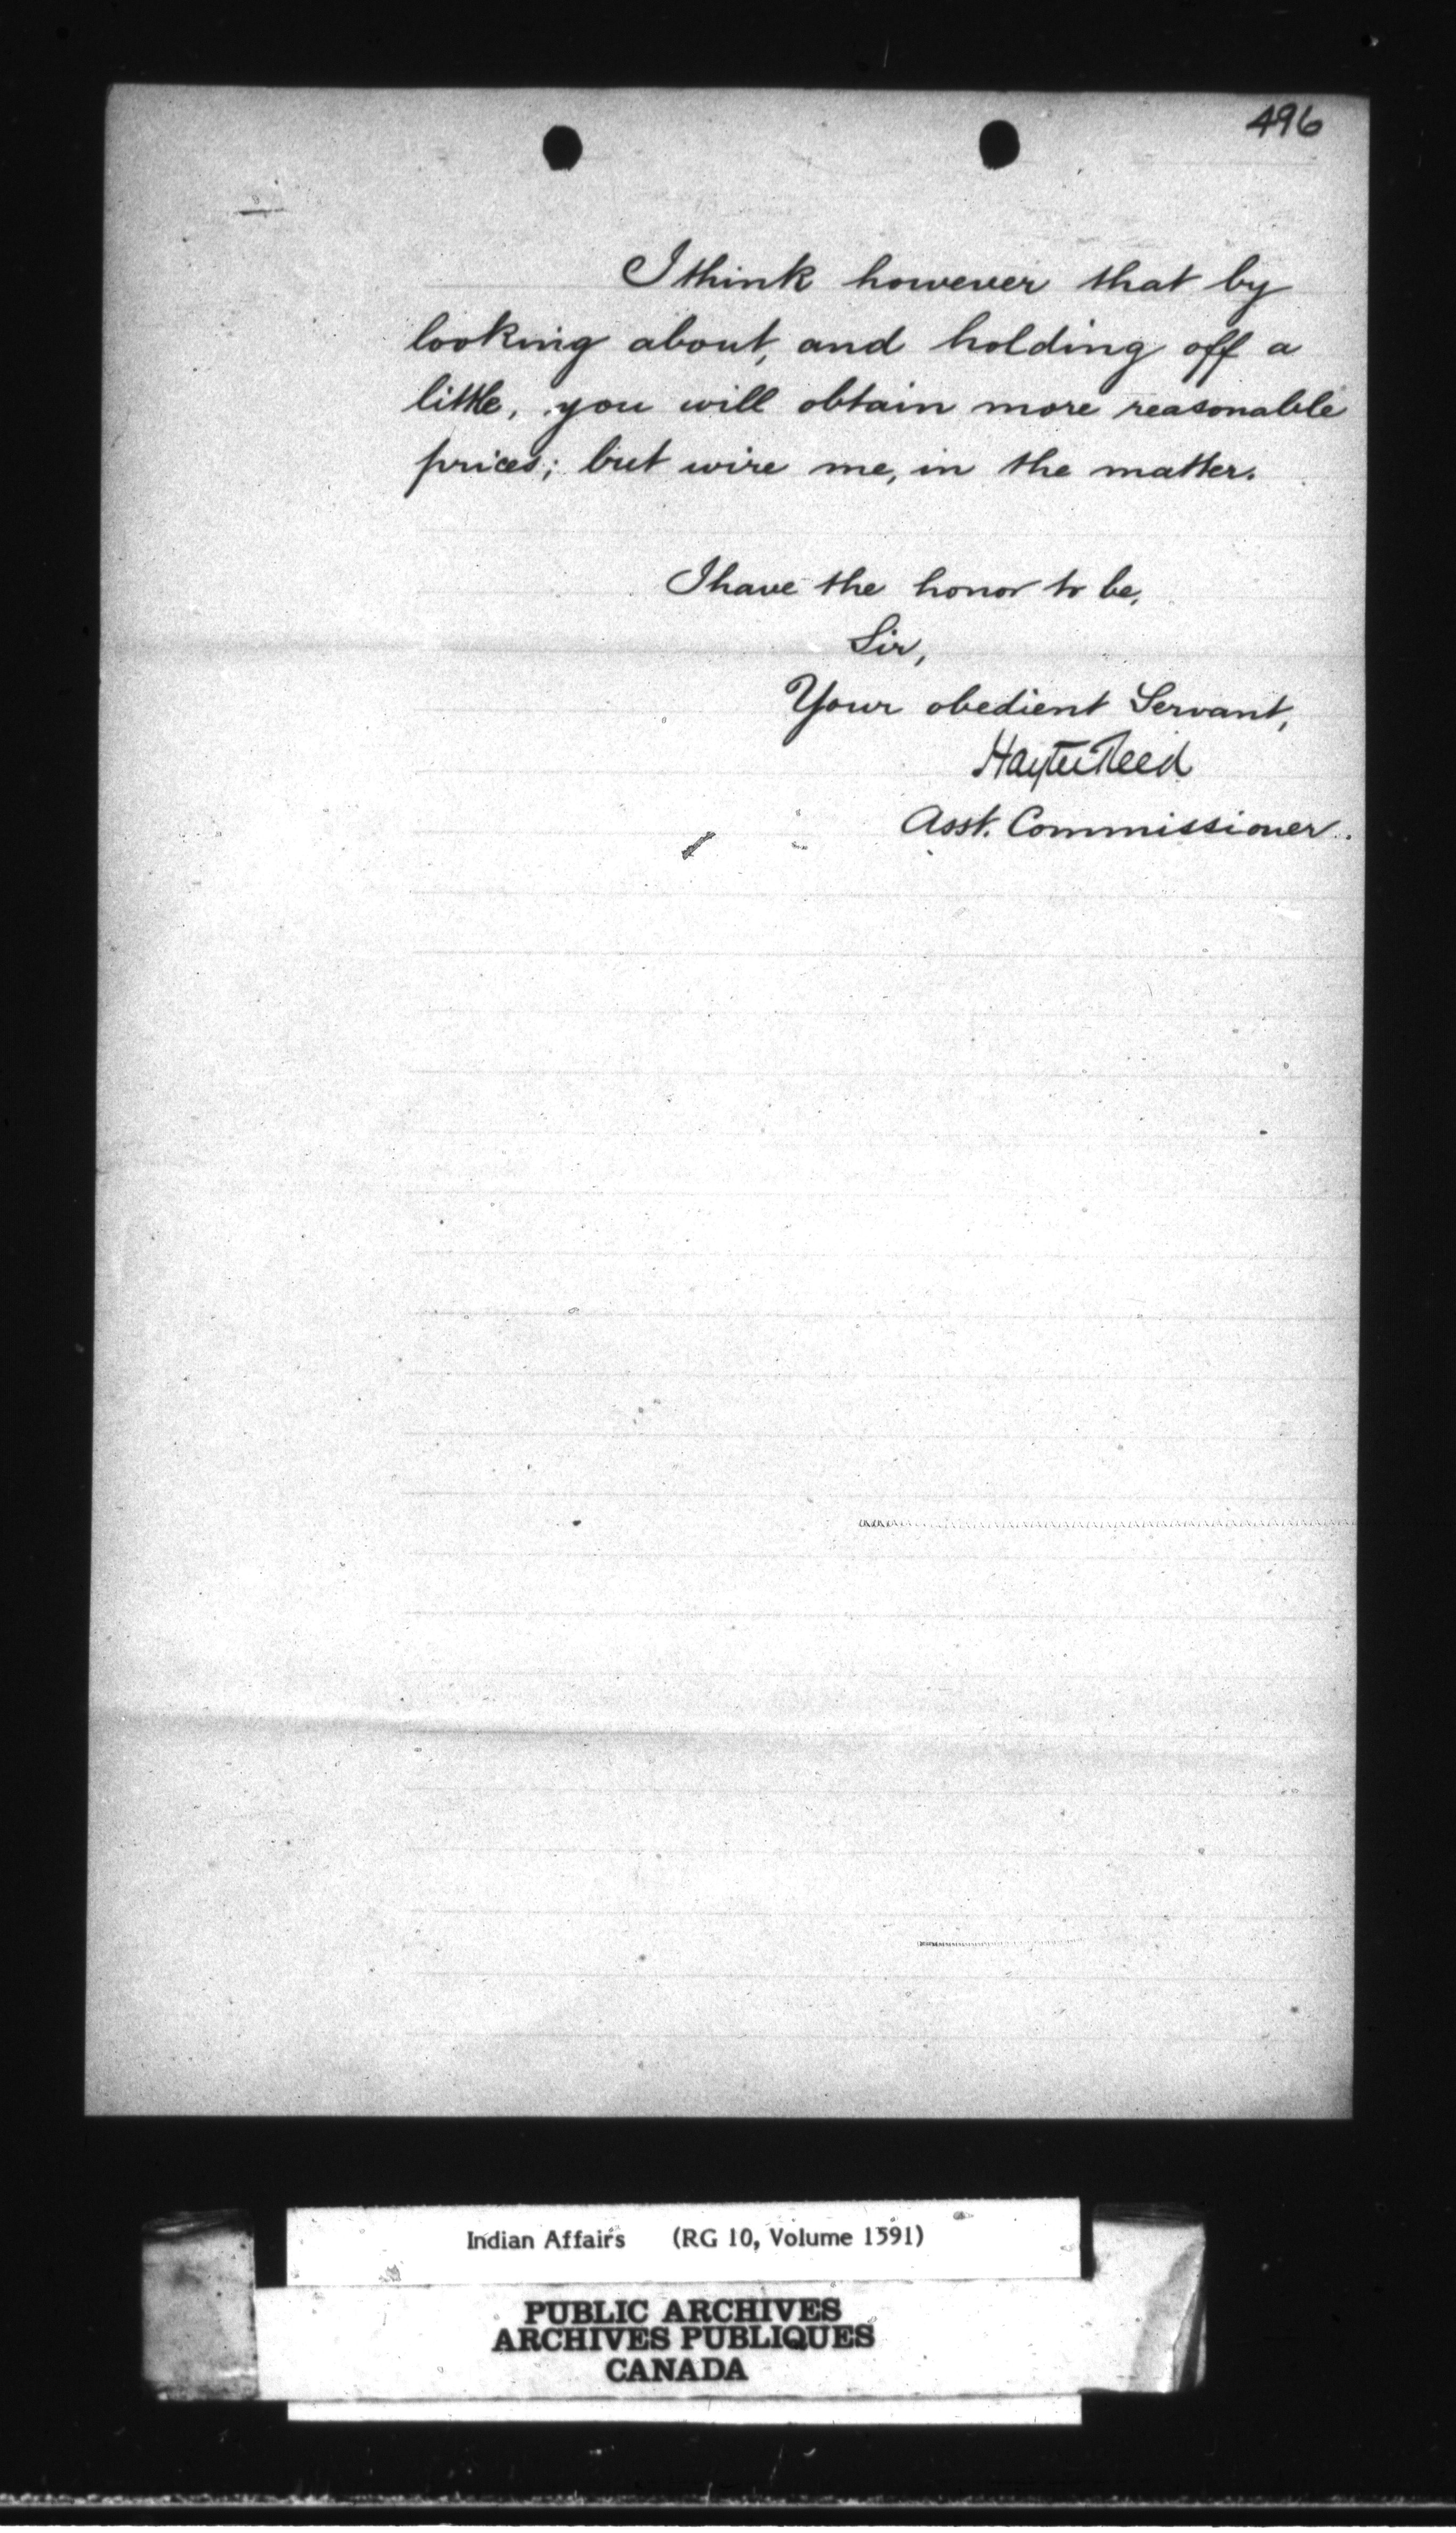 496
I think however that by
looking about, and holding off a
little, you will obtain more reasonable
prices; but wire me, in the matter.
I have the honor to be,
Sir,
Your obedient Servant,
Hayter Reed
Asst. Commissioner.
Indian Affairs (RG 10, Volume 1591)
PUBLIC ARCHIVES
ARCHIVES PUBLIQUES
CANADA